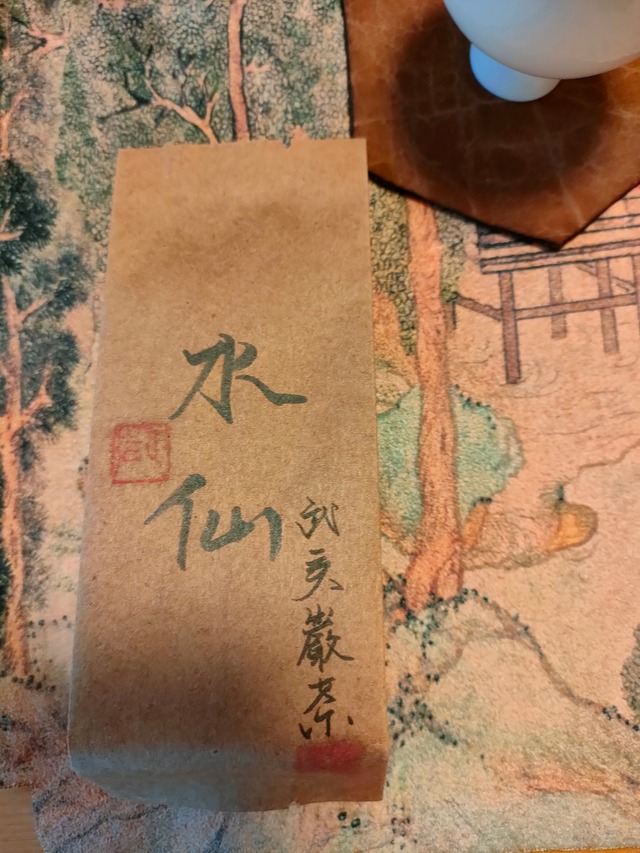 水仙
武夷巖茶